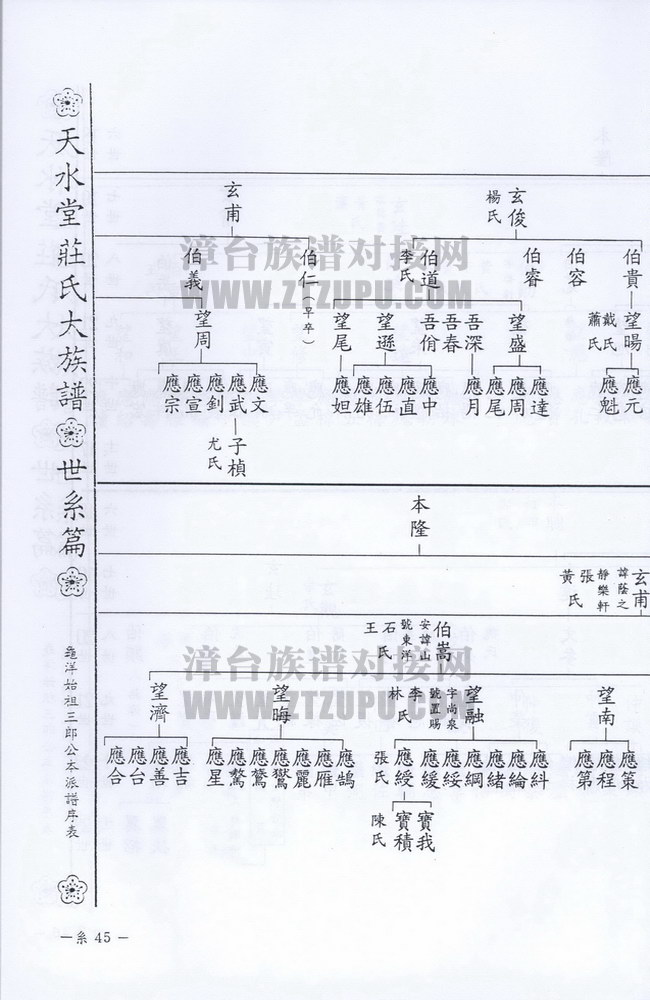 天水堂莊氏大族譜
世系篇
龜洋始祖三郎公本派譜序表
玄俊
楊氏
伯貴
伯容
伯睿
伯道
李氏
望暘
戴氏
蕭氏
應元
應魁
望盛
吾深
吾春
吾佾
望遜
望尾
應達
應周
應尾
應月
應中
應直
應伍
應雄
應妲
玄甫
伯仁(早卒)
伯義
望周
應文
應武
應釗
應宣
應宗
子楨
尤氏
本隆
玄甫
諱蔭之
靜樂軒
張氏
黃氏
伯嵩
安諱山
號東洋
石氏
王氏
望南
應策
應程
應第
望融
字尚泉
號置賜
李氏
林氏
應糾
應綸
應緒
應綱
應綏
應緩
應綬
張氏
寶我
寶積
陳氏
望晦
應鵠
應雁
應麗
應鷟
應騖
應星
望濟
應吉
應善
應台
應合
漳台族谱对接网
WWW.ZTZUPU.COM
漳台族谱对接网
WWW.ZTZUPU.COM
—系 45 —